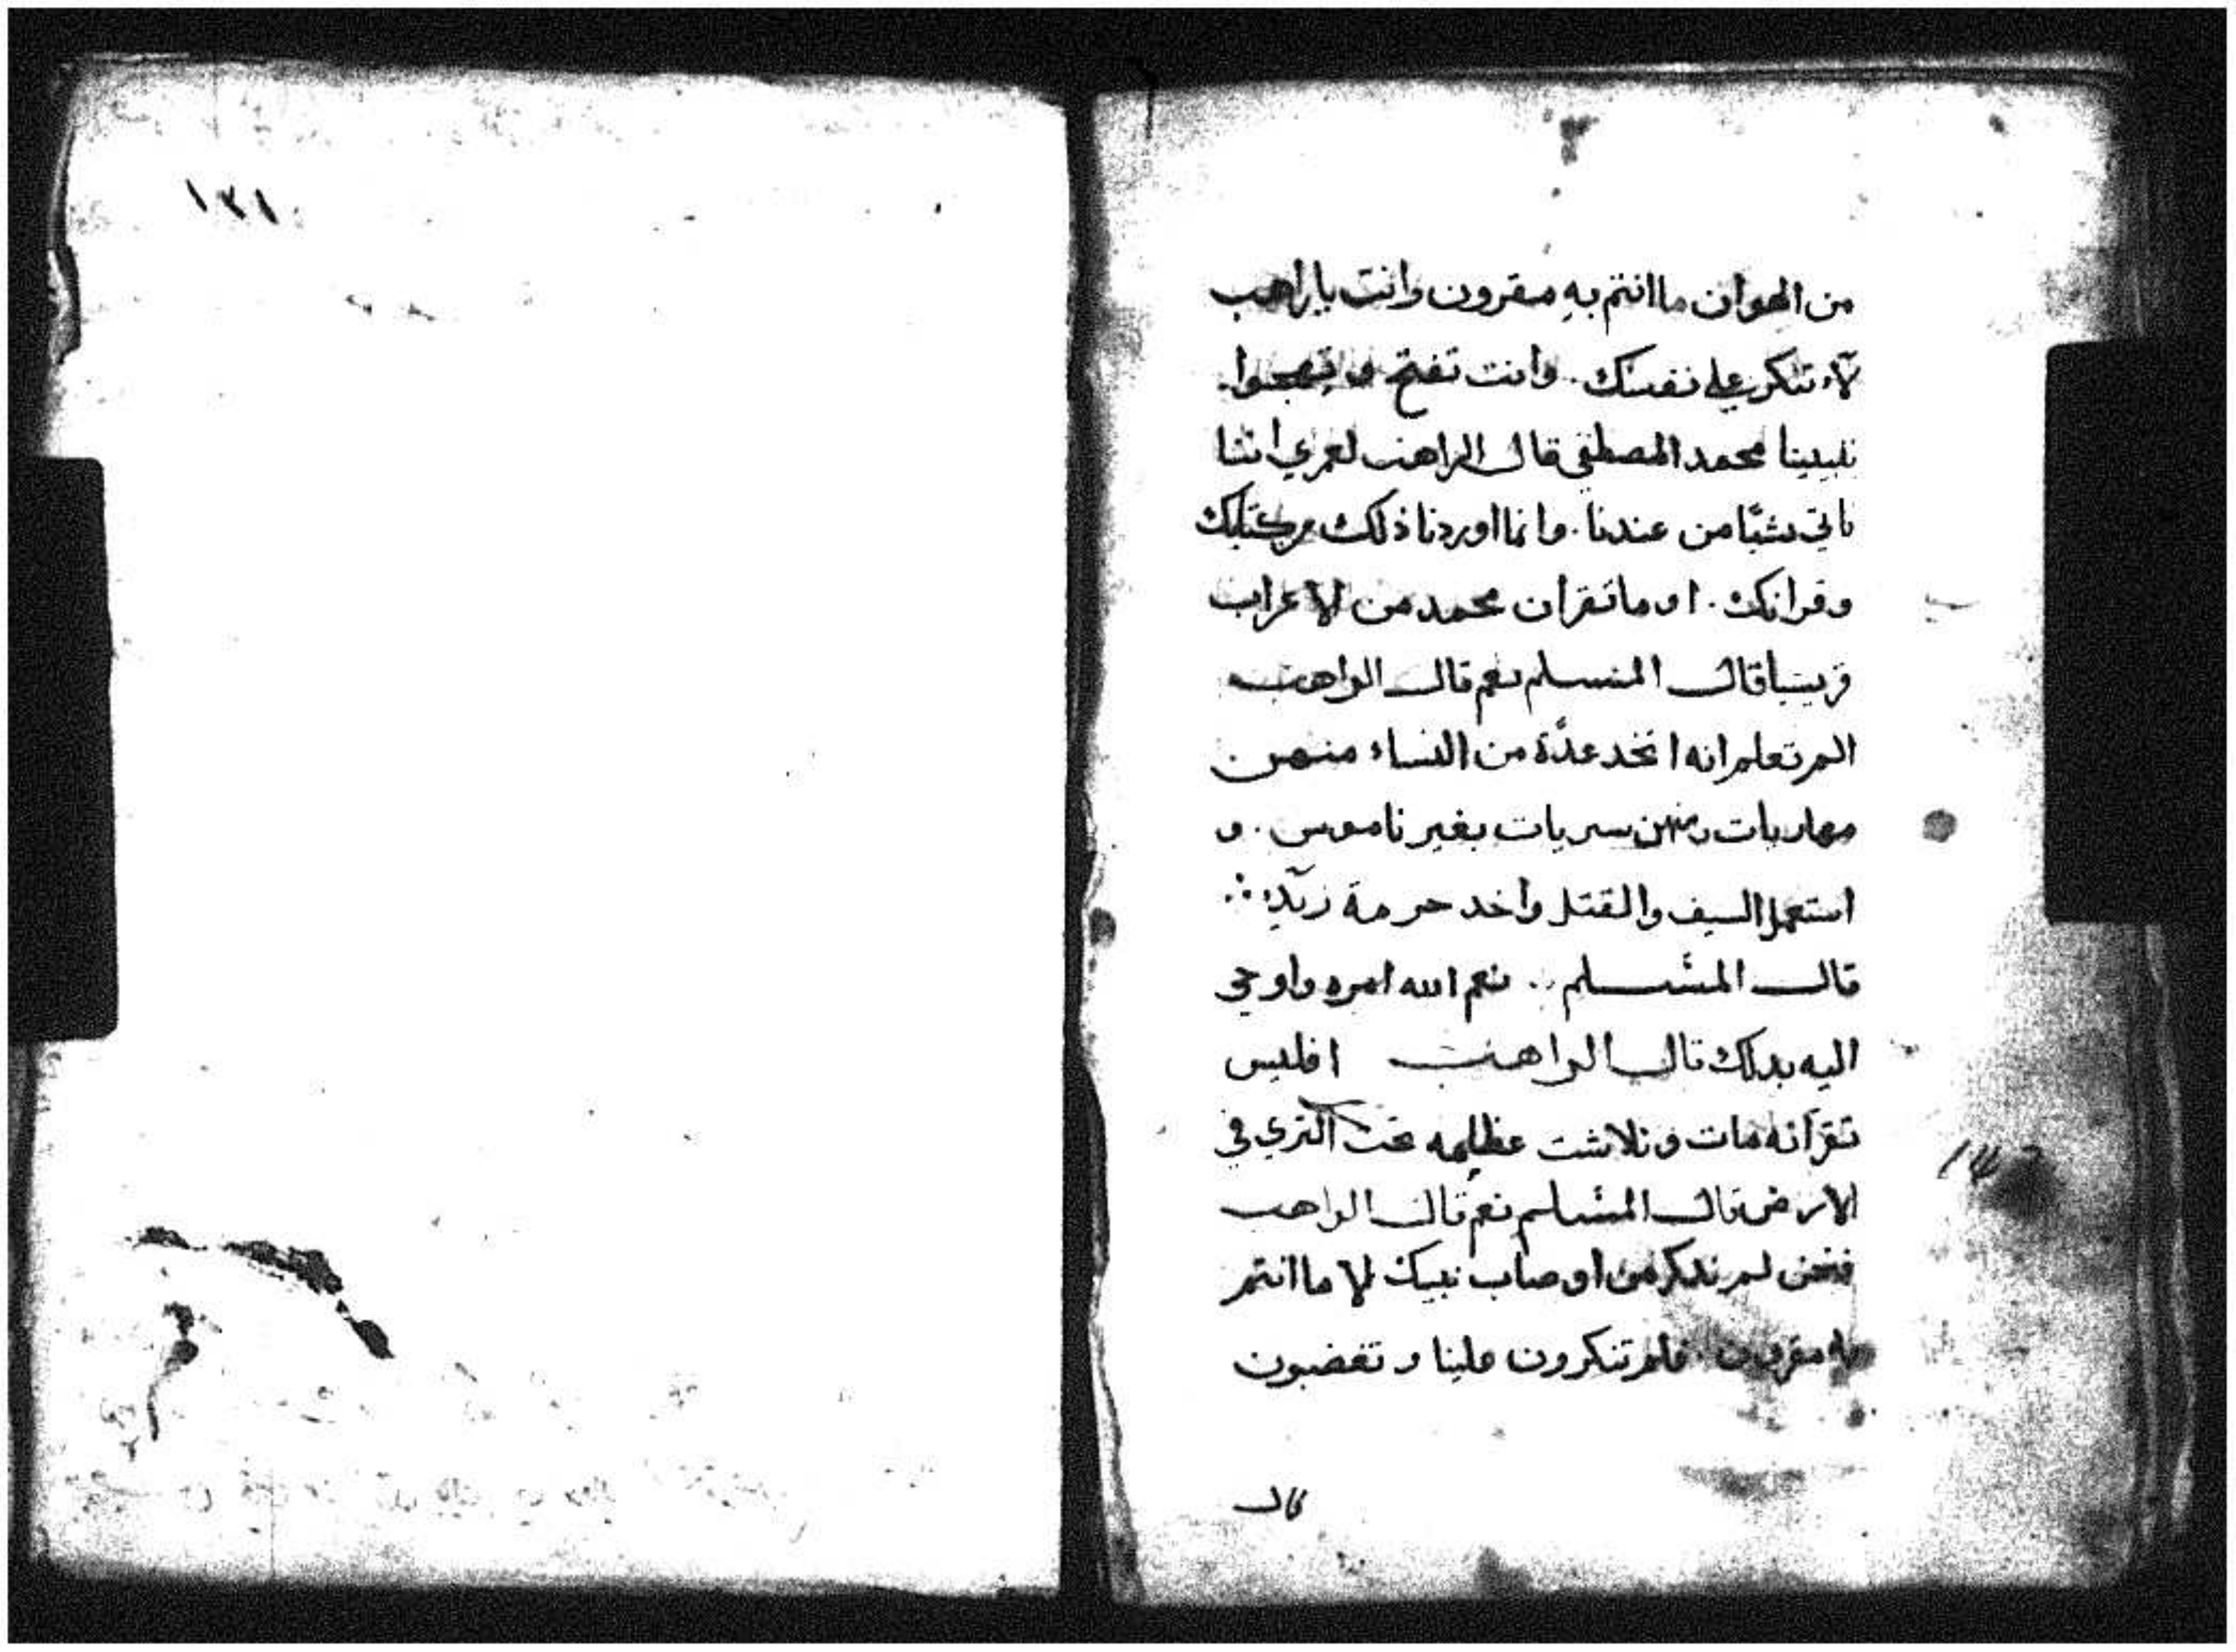 من الهوان ما انتم به مقرون وانت ياراهب
لا تنكر على نفسك. وانت تفتح و تهجوا.
نبينا محمد المصطفى قال الراهب لعمري اننا
ناتي بشيا من عندنا. وانما اوردنا ذلك من كتابك
وقرانك. او ما تقر ان محمد من الاعراب
قريشيا قال المسلم نعم قال الراهب
الم تعلم انه اتخد عدة من النساء منهن
مهاريات ومنهن سريات بغير ناموس. و
استعمل السيف والقتل واخد حرمة زيد؛
قال المسلم .. نعم الله امره واوحى
اليه بدلك قال الراهب افليس
تقر انه مات و تلاشت عظامه تحت الترى في
الارض قال المسلم نعم قال الراهب
فنحن لم ندكر من اوصاب نبيك الا ما انتم
به مقرون. فلم تنكرون علينا و تغضبون
قال
١٣١